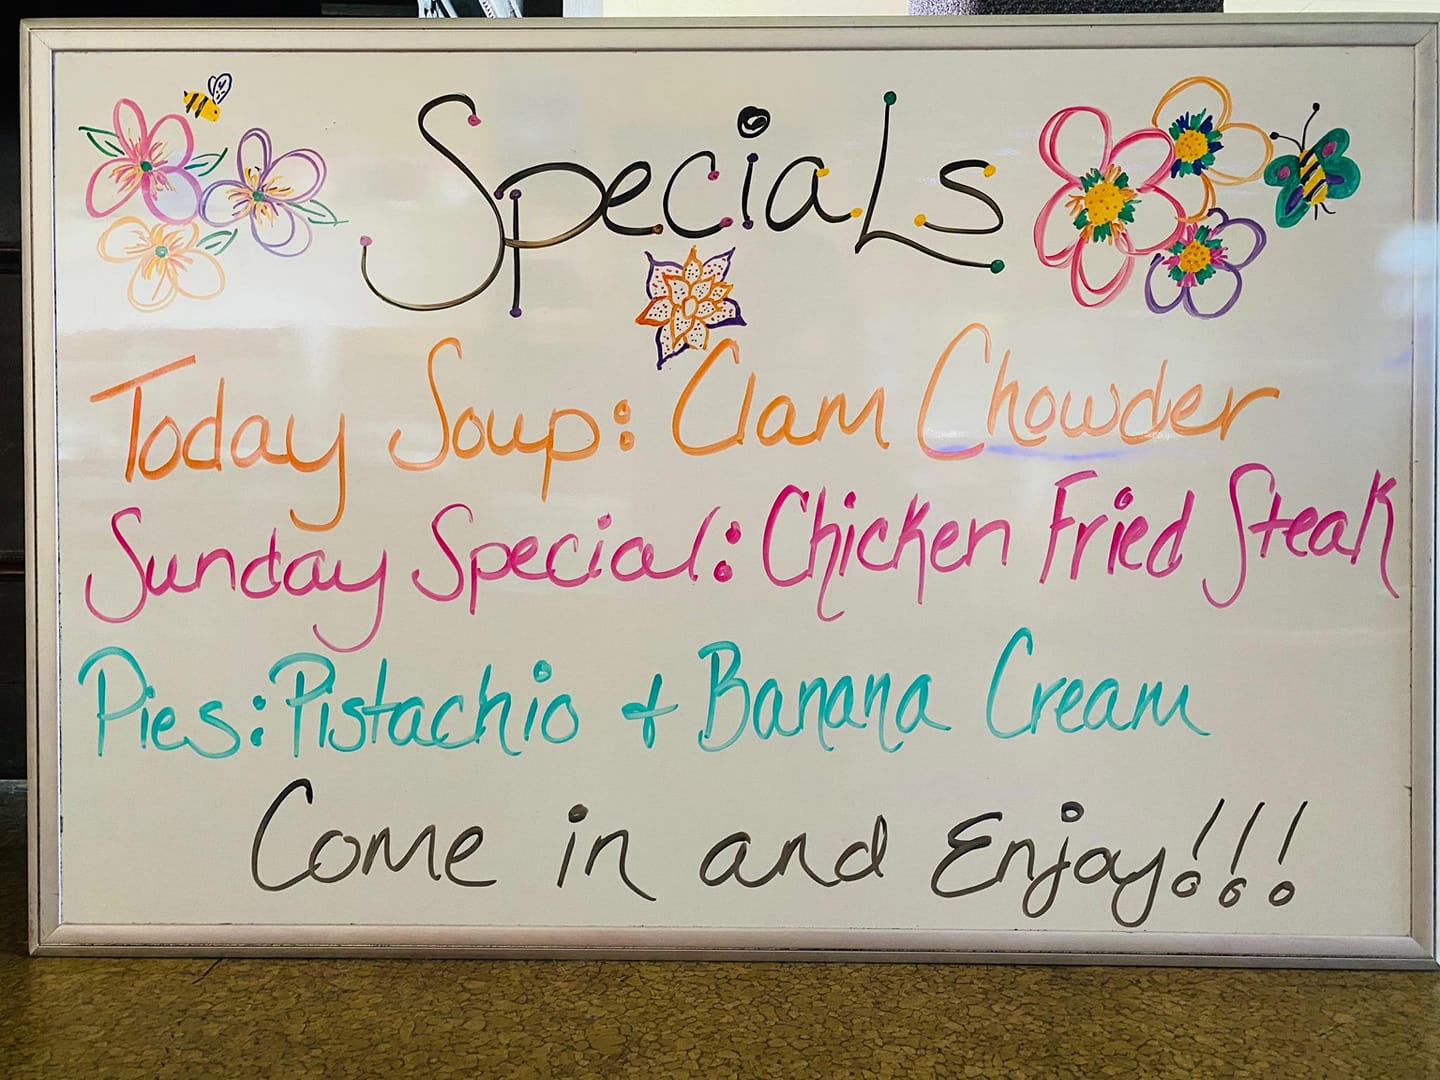 Specials
Today Soup: Clam Chowder
Sunday Special: Chicken Fried Steak
Pies: Pistachio + Banana Cream
Come in and Enjoy!!!